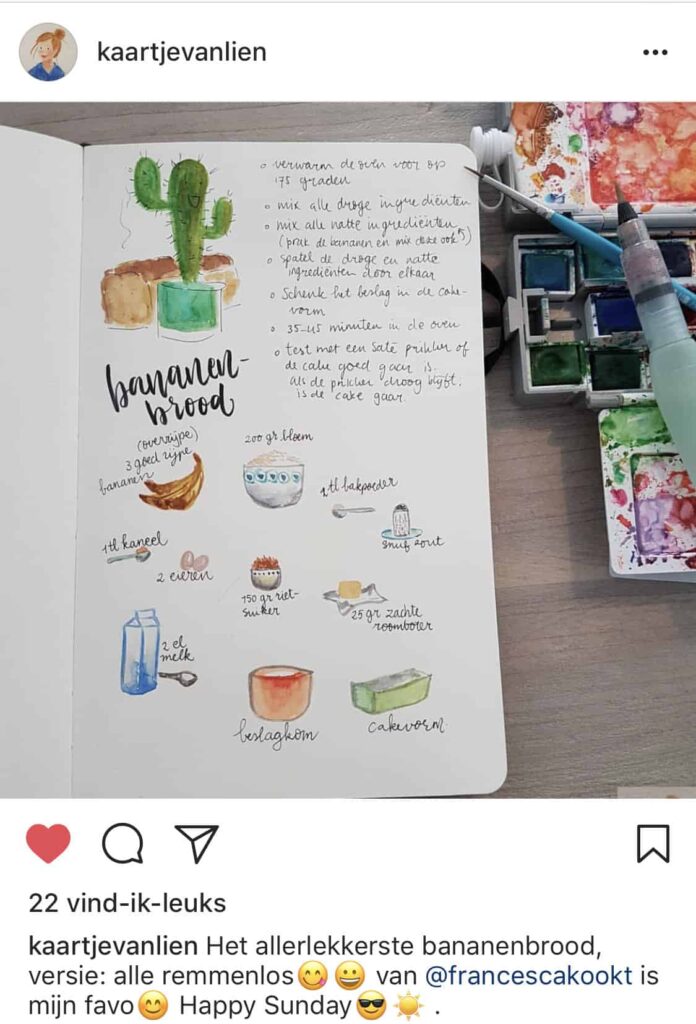 kaartjevanlien
o verwarm de oven voor op
175 graden
o mix alle droge ingrediënten
o mix alle natte ingrediënten
(prak de bananen en mix deze ook)
o spatel de droge en natte
ingrediënten door elkaar
o schenk het beslag in de cake-
vorm
o 35-45 minuten in de oven
o test met een saté prikker of
de cake goed gaar is.
als de prikker droog blijft,
is de cake gaar.
bananen-
brood
(overrijpe)
3 goed rijpe
bananen
200 gr bloem
1 tl bakpoeder
snuf zout
1 tl kaneel
2 eieren
150 gr riet-
suiker
25 gr zachte
roomboter
2 el
melk
beslagkom
cakevorm.
22 vind-ik-leuks
kaartjevanlien Het allerlekkerste bananenbrood,
versie: alle remmenlos😋😀 van @francescakookt is
mijn favo😊 Happy Sunday😎☀️ .